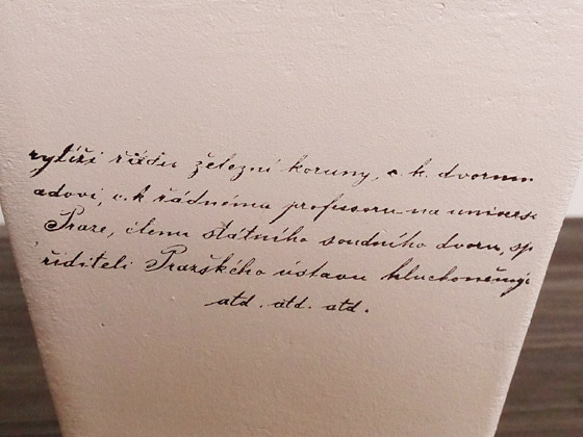 rytíři řádu železní koruny, c. k. dvornm
adovi, c. k řádnému professoru na universi
Praze, členu státního soudního dvoru, sp
řiditeli Pražského ústavu hluchoněmýc
atd. atd. atd.